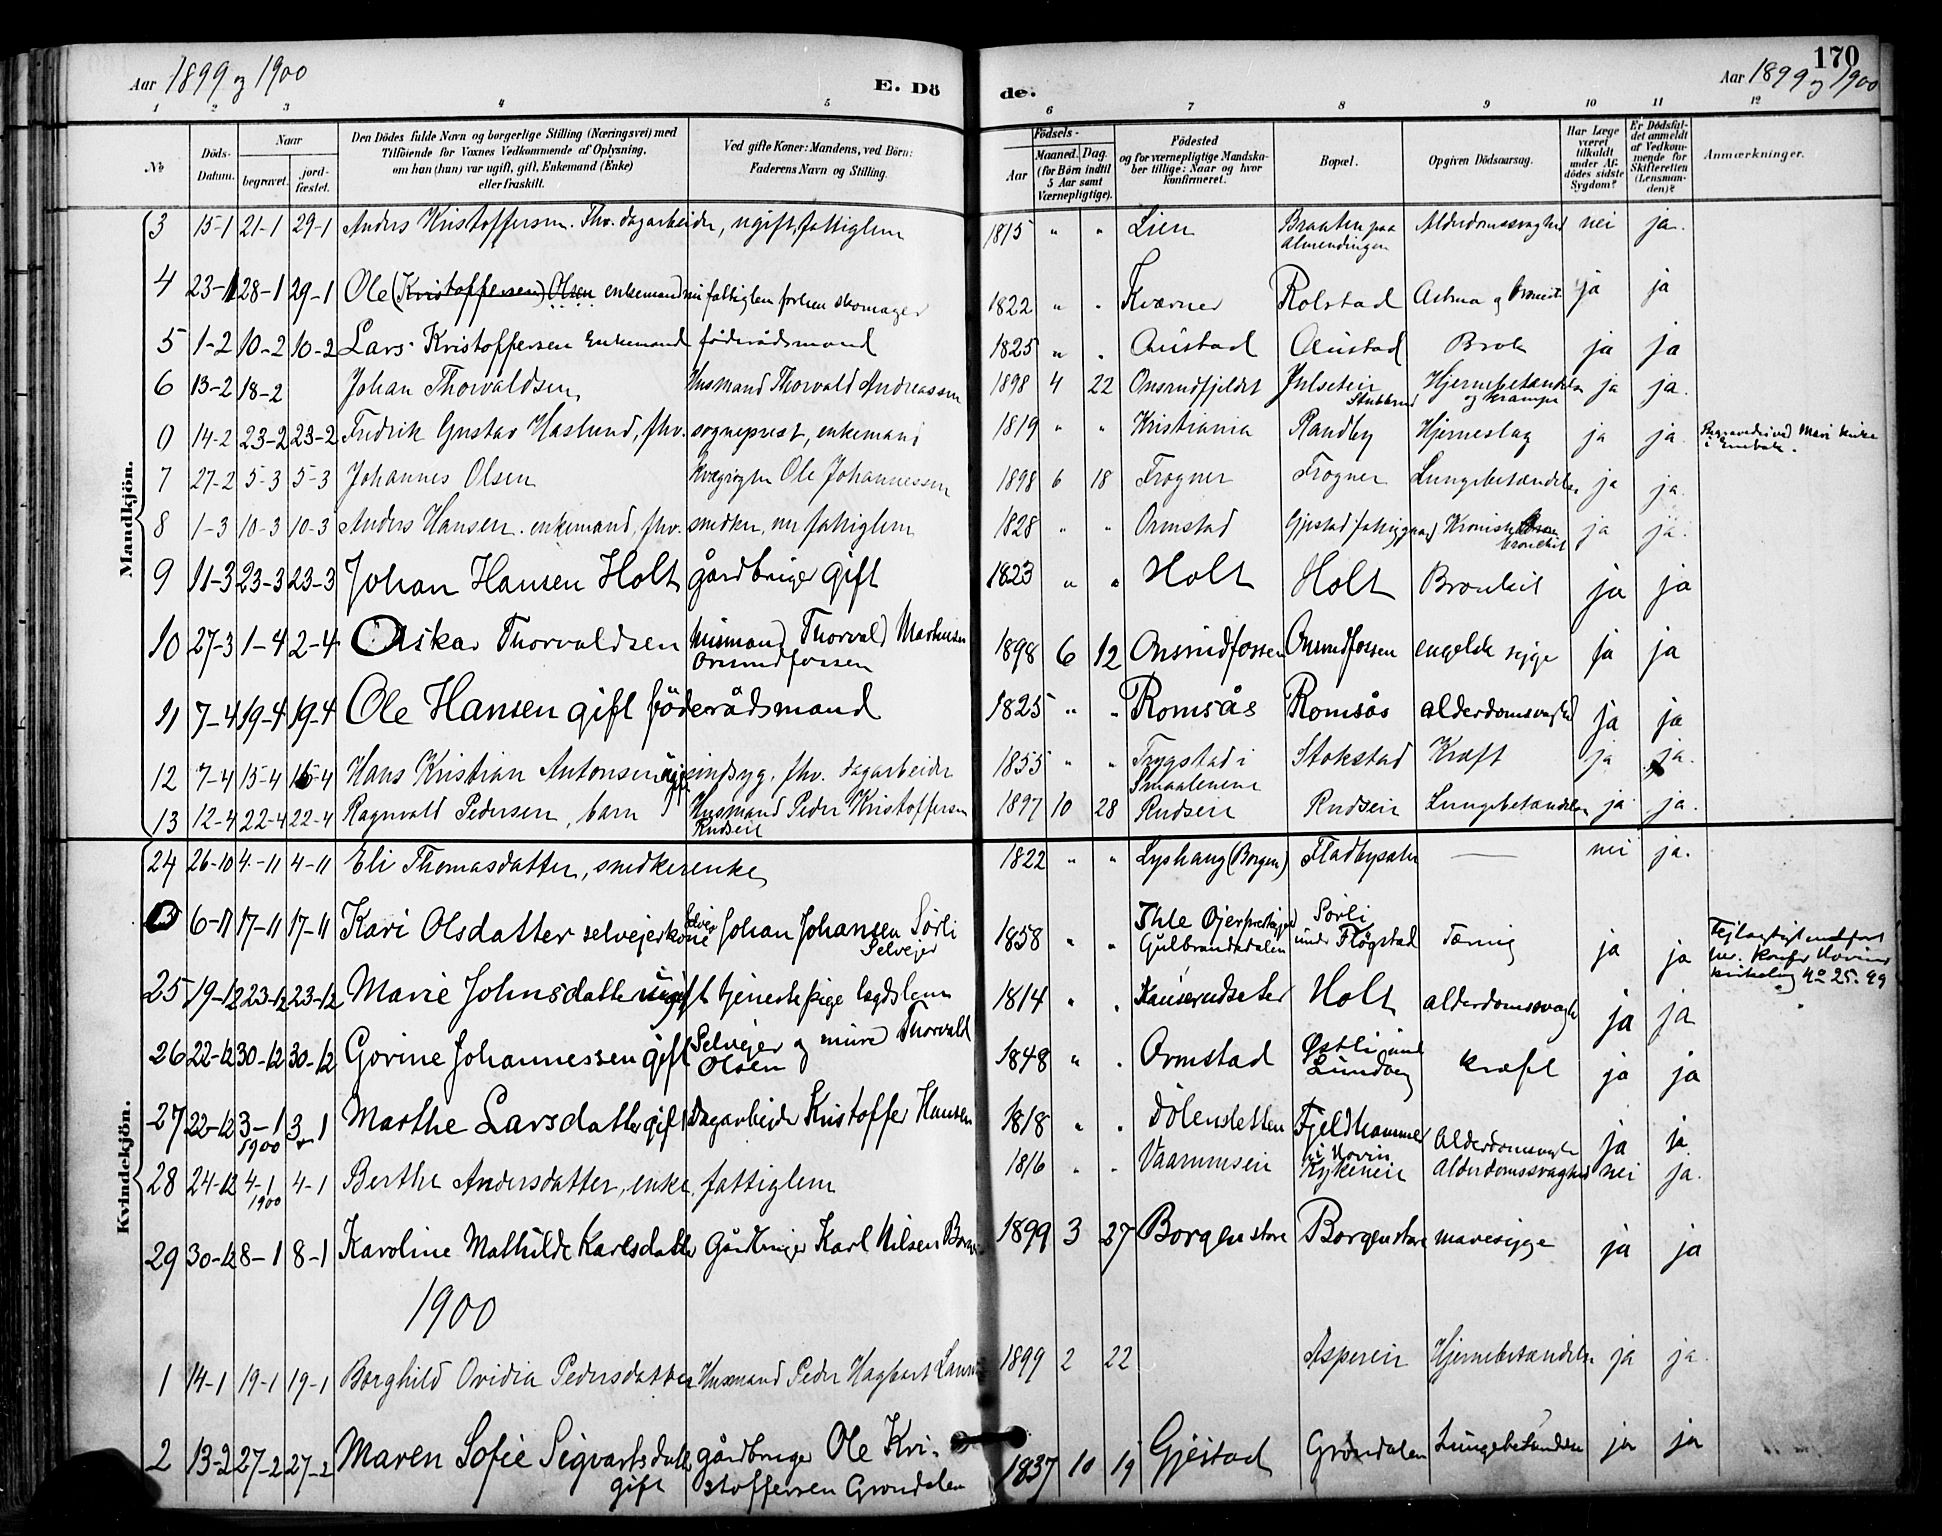 Aar 1899 og 1900 E. Dö de. Aar 1899 og 1900 170
1 2 3 4 5 6 7 8 9 10 11 12
No Döds-Datum. Naar begravet. jord-fæstet. Den Dödes fulde Navn og borgerlige Stilling (Næringsvei) med Tilföiende for Voxnes Vedkommende af Oplysning, om han (hun) var ugift, gift, Enkemand (Enke) eller fraskilt. Ved gifte Koner: Mandens, ved Börn: Faderens Navn og Stilling. Födsels- Aar Maaned. Dag. (for Börn indtil 5 Aar samt Værnepligtige). Födested og for værnepligtige Mandskaber tillige: Naar og hvor konfirmeret. Bopæl. Opgiven Dödsaarsag. Har Læge været tilkaldt under Afdödes sidste Sygdom? Er Dödsfaldet anmeldt af Vedkommende for Skifteretten (Lensmanden)? Anmærkninger.
Mandkjön.
3 15-1 21-1 29-1 Anders Kristoffersen. Fhv. dagarbeider, ugift, fattiglem 1815 " " Lien Braaten paa Almendingen Alderdomssvaghed nei ja.
4 23-1 28-1 29-1 Ole (Kristoffersen) Olsen enkemand nu fattiglem forhen skomager 1822 " " Kværner Rolstad Astma og bronkit ja ja
5 1-2 10-2 10-2 Lars Kristoffersen Enkemand föderådsmand 1825 " " Austad Austad Brok ja ja
6 13-2 18-2 Johan Thorvaldsen Husmand Thorvald Andreassen 1898 4 22 Onsrudfjeldet Julseteir Stubberud Hjernebetændelse og krampe ja ja.
0 14-2 23-2 23-2 Fredrik Gustav Haslund, fhv. sogneprest, enkemand 1819 " " Kristiania Randby Hjerneslag ja ja. Begravedes ved Mari kirke i Enebak.
7 27-2 5-3 5-3 Johannes Olsen Kvægrögter Ole Johannessen 1898 6 18 Frogner Frogner Lungebetændelse ja ja.
8 1-3 10-3 10-3 Anders Hansen. enkemand, fhv. snedker, nu fattiglem 1828 " " Ormstad Gjestad fattiggaard Kronisk bronchit ja ja.
9 11-3 23-3 23-3 Johan Hansen Holt gårdbruger gift 1823 " " Holt Holt Bronkit ja ja
10 27-3 1-4 2-4 Oskar Thorvaldsen husmand Thorvald Markusen Onsrudfossen 1898 6 12 Onsrudfossen Onsrudfossen engelsk syge ja ja
11 7-4 19-4 19-4 Ole Hansen gift föderådsmand 1825 " " Romsås Romsås alderdomsvaghed ja ja
12 7-4 15-4 15-4 Hans Kristian Antonsen ugift sindsyg, fhv. dagarbeider 1855 " " Trygstad i Smaalenene Stokstad Kræft ja ja.
13 12-4 22-4 22-4 Ragnvald Pedersen, barn Husmand Peder Kristoffersen Rudseir 1897 10 28 Rudseir Rudseir Lungebetændelse ja ja.
Kvindekjön.
24 26-10 4-11 4-11 Eli Thomasdatter, snedkerenke 1822 " " Lyshaug (Borgen) Fladbyseter — nei ja.
0 6-11 17-11 17-11 Kari Olsdatter selveierkone Johan Johansen Sörli Selvejer 1858 " " Ihle Öjer prestegjeld Gulbrandsdalen Sörli under Flögstad Tæring ja ja Fejlagtigt indfört her. Konfr Hovins kirkebog No 25. 99
25 19-12 23-12 23-12 Marie Johnsdatter ugift tjenestepige lægdslem 1814 " " Kauserudseter Holt alderdomssvaghed ja ja
26 22-12 30-12 30-12 Gorine Johannessen gift Selvejer og murer Thorvald Olsen 1848 " " Ormstad Østli und Lundberg kræft ja ja
27 22-12 3-1 1900 3-1 Marthe Larsdatter gift Dagarbeider Kristoffer Hansen 1818 " " Dölensletten Fjeldhammer i Hovin Alderdomsvaghed ja ja
28 24-12 4-1 1900 4-1 Berthe Andersdatter, enke, fattiglem 1816 " " Vaarumseir Kykeneir Alderdomssvaghed nei ja.
29 30-12 8-1 8-1 Karoline Mathilde Karlsdatter Gårdbruger Karl Nilsen Borgen 1899 3 27 Borgen store Borgen store mavesyge ja ja
1900
1 14-1 19-1 19-1 Borghild Ovidia Pedersdatter Husmand Peder Hagbart 1899 2 22 Aspereir Hjernebetændelse ja ja.
2 13-2 27-2 27-2 Maren Sofie Sigvartsdatter gift gårdbruger Ole Kristoffersen Gröndalen 1837 10 19 Gjestad Gröndalen Lungebetændelse ja ja